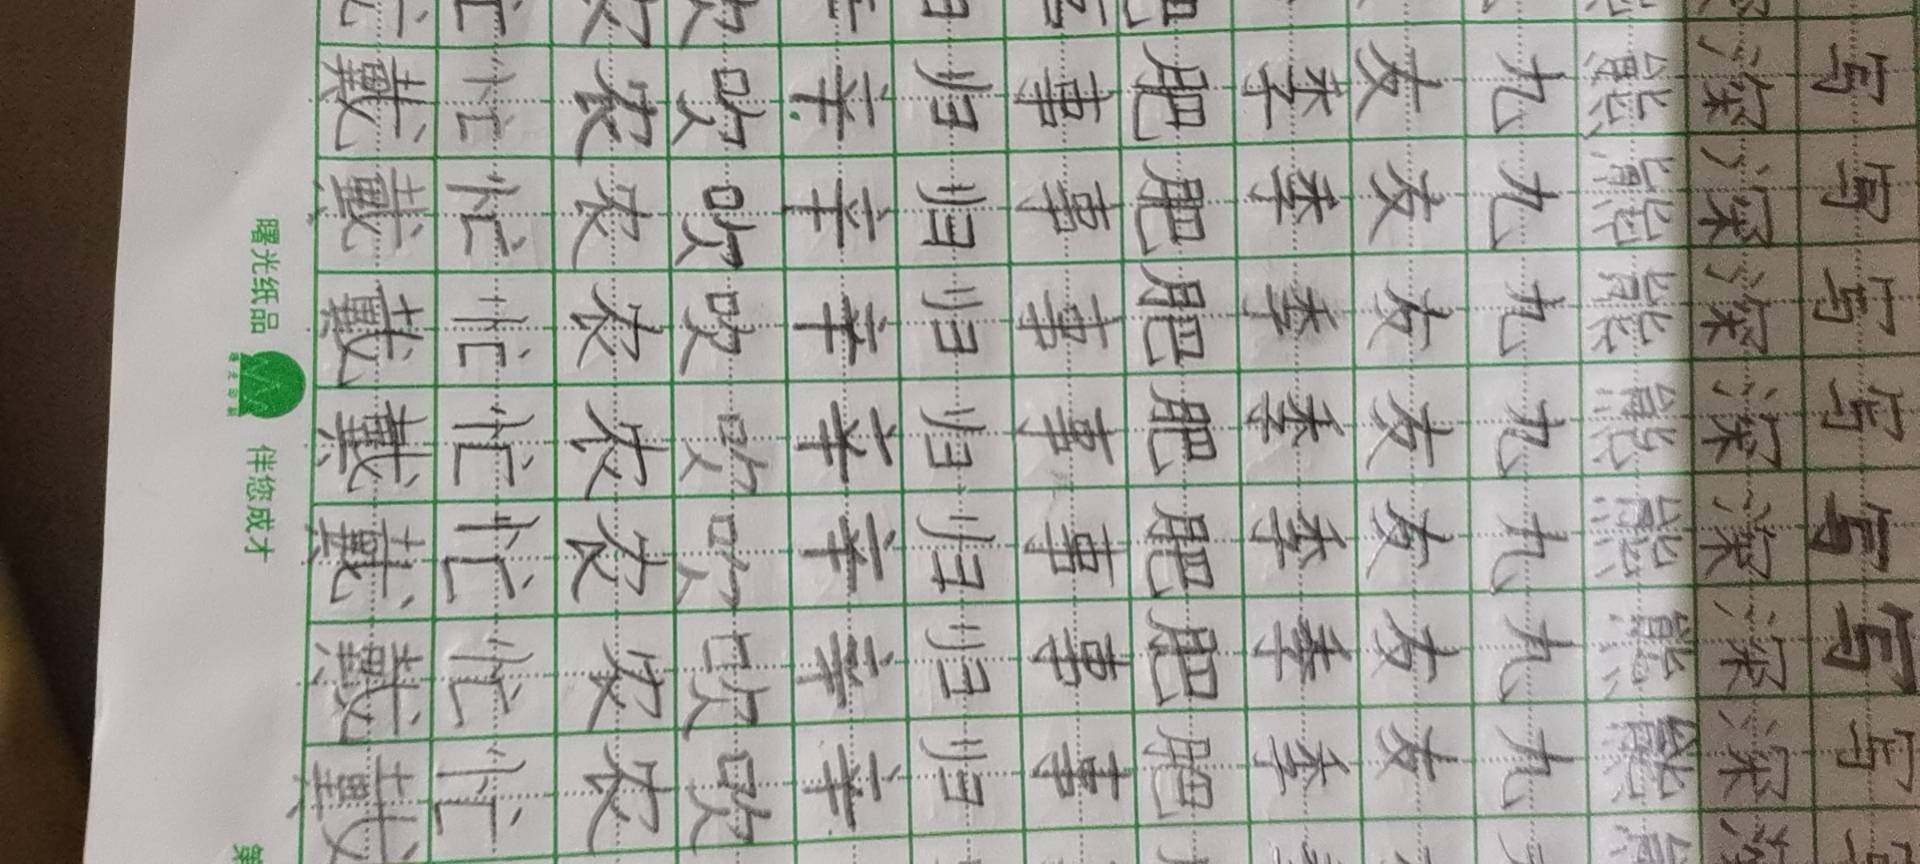 写写写写写写写
深深深深深深深
熊熊熊熊熊熊熊
九九九九九九九
友友友友友友友
季季季季季季季
肥肥肥肥肥肥肥
事事事事事事事
归归归归归归归
辛辛辛辛辛辛辛
吹吹吹吹吹吹吹
农农农农农农农
忙忙忙忙忙忙忙
戴戴戴戴戴戴戴
曙光纸品 伴您成才 第